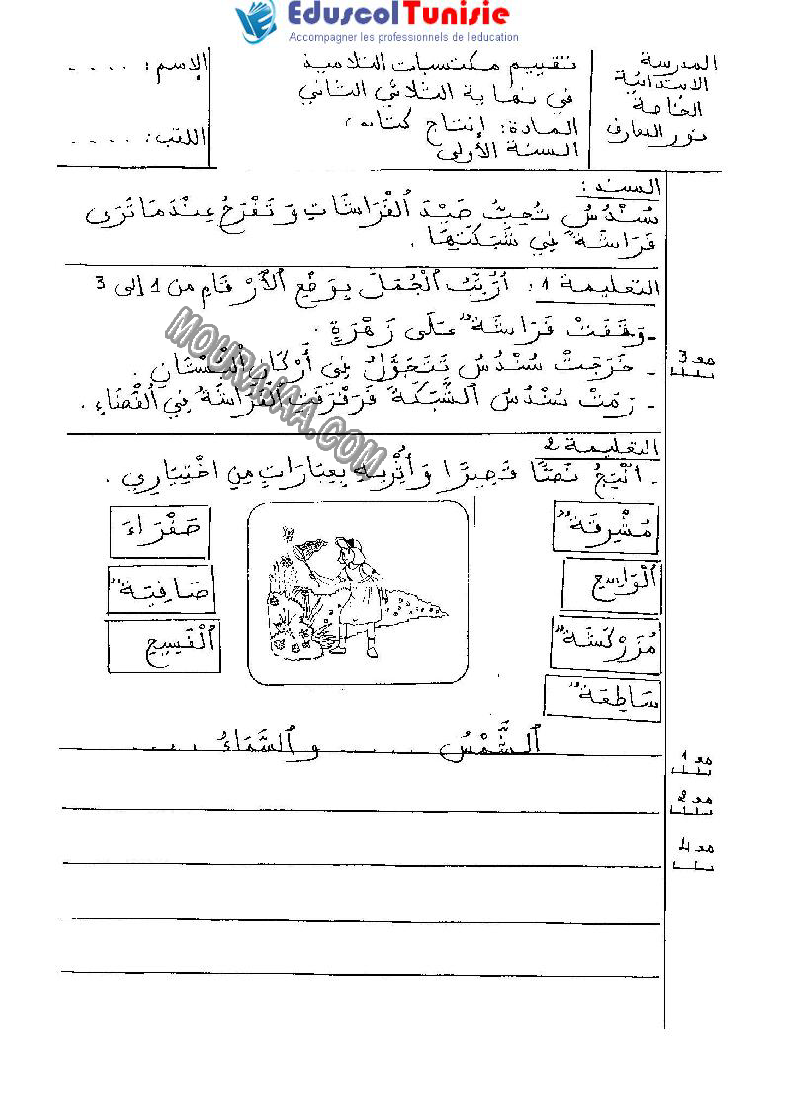 EduscolTunisie
Accompagner les professionnels de leducation
المدرسة
الابتدائية
الخاصة
نور المعارف
تقييم مكتسبات التلاميذ
في نهاية الثلاثي الثاني
المادة: إنتاج كتابي
السنة الأولى
الإسم: ....
اللقب: ....
السند:
سُنْدُسُ تُحِبُّ صَيْدَ ٱلْفَرَاشَاتِ وَ تَفْرَحُ عِنْدَمَا تَرَى
فَرَاشَةً فِي شَبَكَتِهَا .
التعليمة 1: أُرَتِّبُ ٱلْجُمَلَ بِوَضْعِ ٱلْأَرْقَامِ من 1 إلى 3
- وَقَفَتْ فَرَاشَةٌ عَلَى زَهْرَةٍ .
- خَرَجَتْ سُنْدُسُ تَتَجَوَّلُ فِي أَرْكَانِ ٱلْبُسْتَانِ .
- رَمَتْ سُنْدُسُ ٱلشَّبَكَةَ فَرَفْرَفَتِ ٱلْفَرَاشَةُ فِي ٱلْفَضَاءِ .
مع 3
MOURAJAA.COM
التعليمة 2
- أُنْتِجُ نَصًّا قَصِيرًا وَ أُثْرِيهِ بِعِبَارَاتٍ مِنِ اخْتِيَارِي .
مُشْرِقَةٌ
ٱلْوَاسِعِ
مُزَرْكَشَةٌ
سَاطِعَةٌ
صَفْرَاءَ
صَافِيَةٌ
ٱلْفَسِيحِ
ٱلشَّمْسُ .... وٱلسَّمَاءُ ....
مع 1
مع 2
مع 4